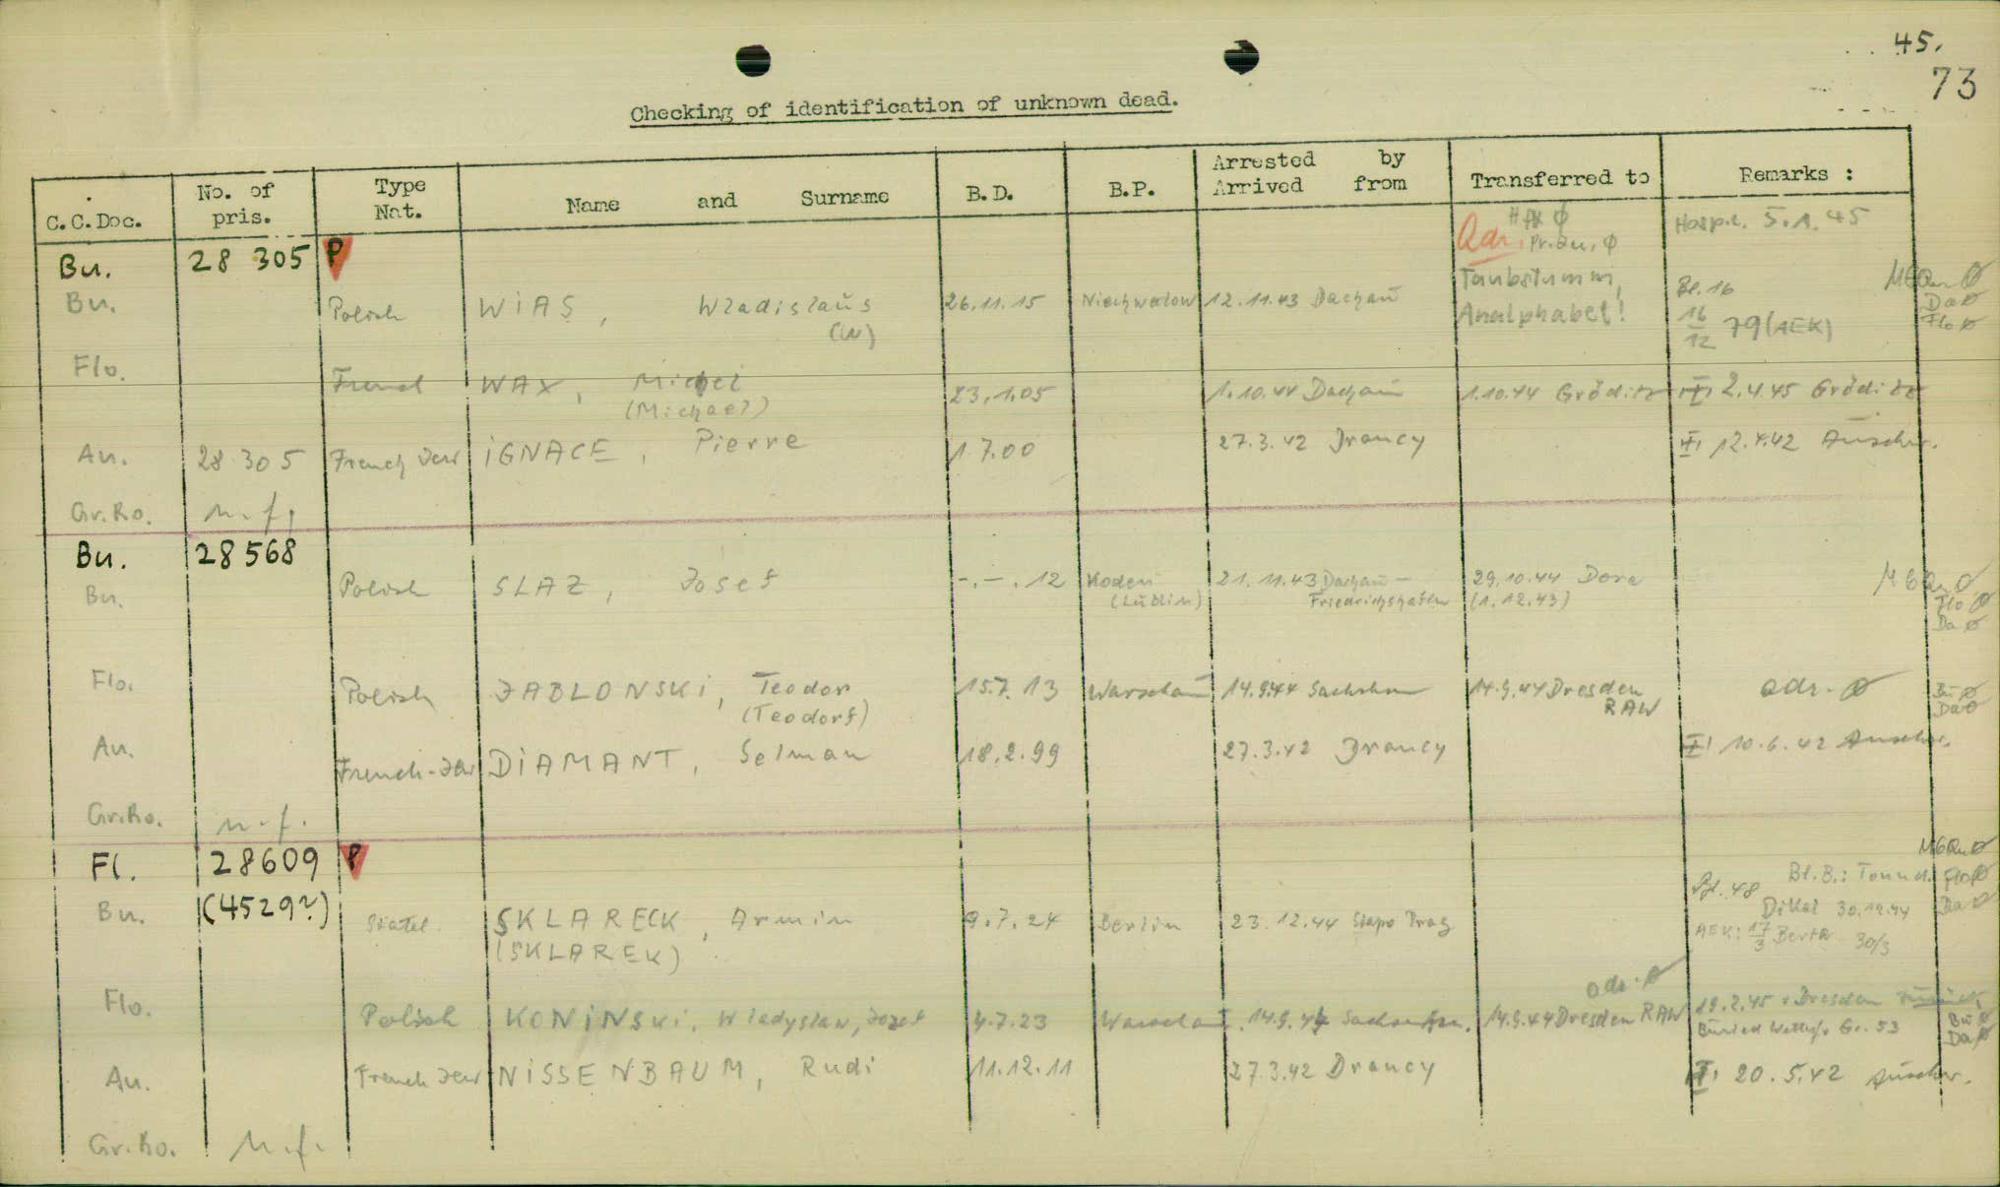 45.
73
Checking of identification of unknown dead.
C.C.Doc. No. of pris. Type Nat. Name and Surname B.D. B.P. Arrested by Arrived from Transferred to Remarks :
Bu. 28 305 P Adr. Pr.Bu. Ø Hospit. 5.1.45
Bu. Polish WIAS, Wladislaus 26.11.15 12.11.43 Dachau Taubstumm, Bl.16 Ø
(W) Analphabet! 16/12 79 (AEK) Da Ø
Flo Ø
Flo. French WAX, Michel 23.1.05 1.10.44 Dachau 1.10.44 Gröditz 2.4.45 Gröditz
(Michael)
Au. 28 305 French Jew IGNACE, Pierre 1.7.00 27.3.42 Drancy 12.4.42 Auschw.
Gr.Ro. n.f.
Bu. 28568
Bu. Polish SLAZ, Josef -.-.12 Koden 21.11.43 Dachau - 29.10.44 Dora Ø
(Lublin) Friedrichshafen (1.12.43) Flo Ø
Da Ø
Flo. Polish JABLONSKI, Teodor 15.7.13 Warschau 14.9.44 Sachsenhsn 14.9.44 Dresden adr. Ø Bu Ø
(Teodorf) RAW Da Ø
Au. French-Jew DIAMANT, Selman 18.2.99 27.3.42 Drancy 10.6.42 Auschw.
Gr.Ro. n.f.
Fl. 28609 P
Bu. (4529?) Statel. SKLARECK, Armin 9.7.24 Berlin 23.12.44 Stapo Prag Bl.48 Flo Ø
(SKLAREK) 30.12.44 Da Ø
AEK: 17/3 Berta 30/3
adr. Ø
Flo. Polish KONINSKI, Wladyslaw, Jozef 4.7.23 Warschau 14.9.44 Sachsenhsn. 14.9.44 Dresden RAW 19.2.45 v Dresden
Buried Gr. 53 Bu Ø
Da Ø
Au. French Jew NISSENBAUM, Rudi 11.12.11 27.3.42 Drancy 20.5.42 Auschw.
Gr.Ro. n.f.